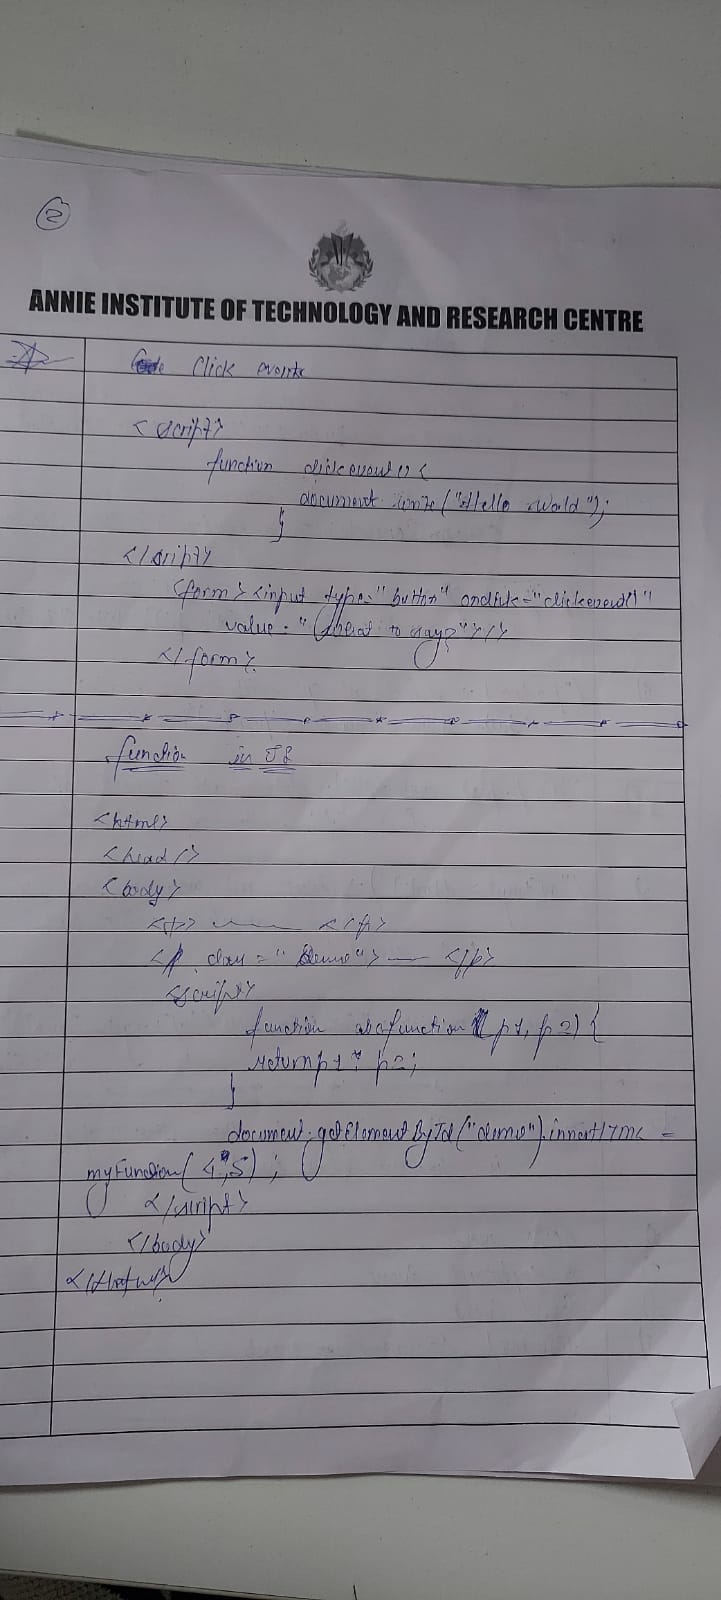 2
ANNIE INSTITUTE OF TECHNOLOGY AND RESEARCH CENTRE
Click events
<script>
function clickevent() {
document.write("Hello World");
}
</script>
<form> <input type="button" onclick="clickevent()"
value = " to say?"/>
</form>
function in JS
<html>
<head/>
<body>
<p> </p>
<p = "demo"> </p>
<script>
function (p1, p2) {
return p1 * p2;
}
document.getElementById("demo").innerHTML =
myFunction(4,5);
</script>
</body>
</html>